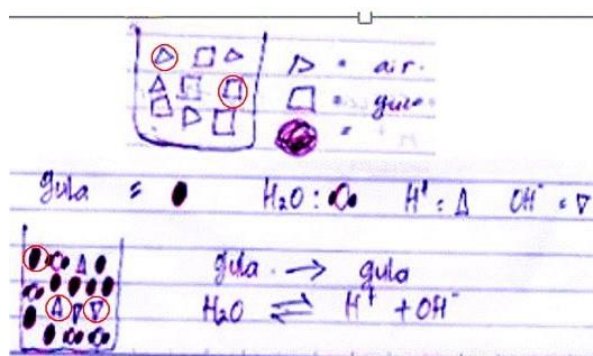 ▷ = air.
□ = gula
=
gula = ● H₂O : H⁺ = △ OH⁻ = ▽
gula → gula
H₂O ⇌ H⁺ + OH⁻